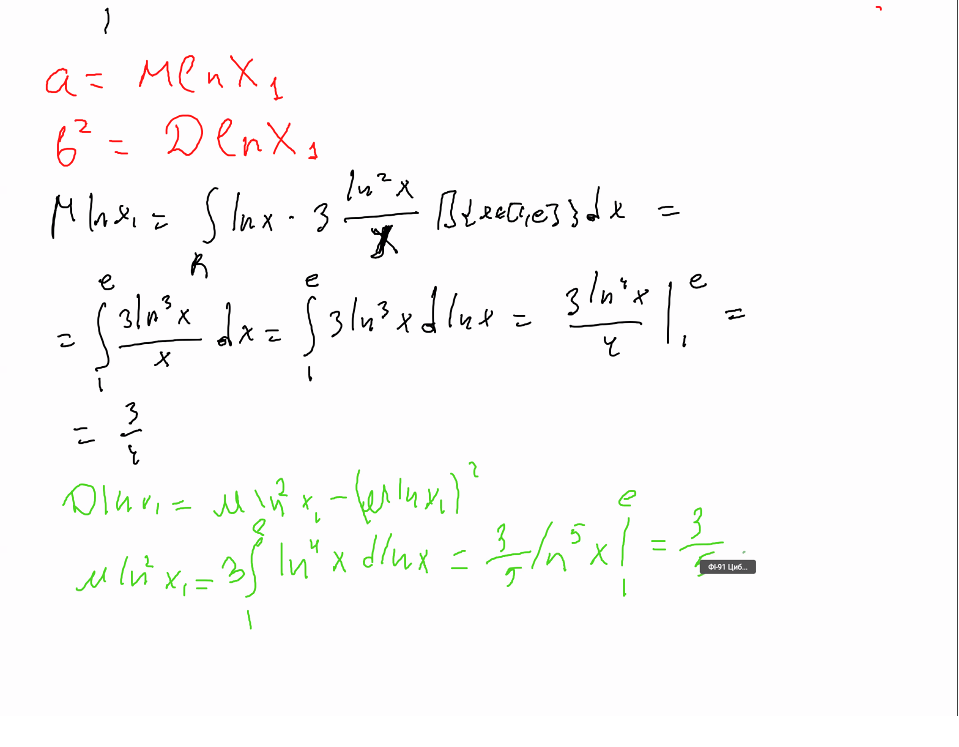 )
a = MlnX₁
б² = DlnX₁
M ln x₁ = ∫_R ln x · 3 ln²x / x 𝟙{x∈[1,e]}dx =
= ∫₁ᵉ 3ln³x / x dx = ∫₁ᵉ 3ln³x d ln x = 3 ln⁴x / 4 |₁ᵉ =
= 3/4
D ln x₁ = M ln²x₁ − (M ln x₁)²
M ln²x₁ = 3∫₁ᵉ ln⁴x d ln x = 3/5 ln⁵x |₁ᵉ = 3/5
ФІ-91 Циб...